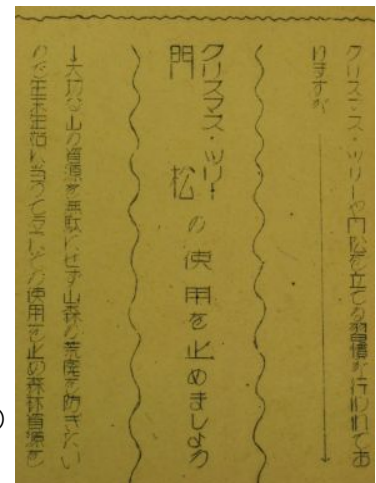 クリスマス・ツリーや門松を立てる習慣が行われてお
りますが
クリスマス・ツリー
門松
の使用を止めましょう
大切な山の資源を無駄にせず山森の荒廃を防ぎたい
ので年末年始に当って使用を止め森林資源を